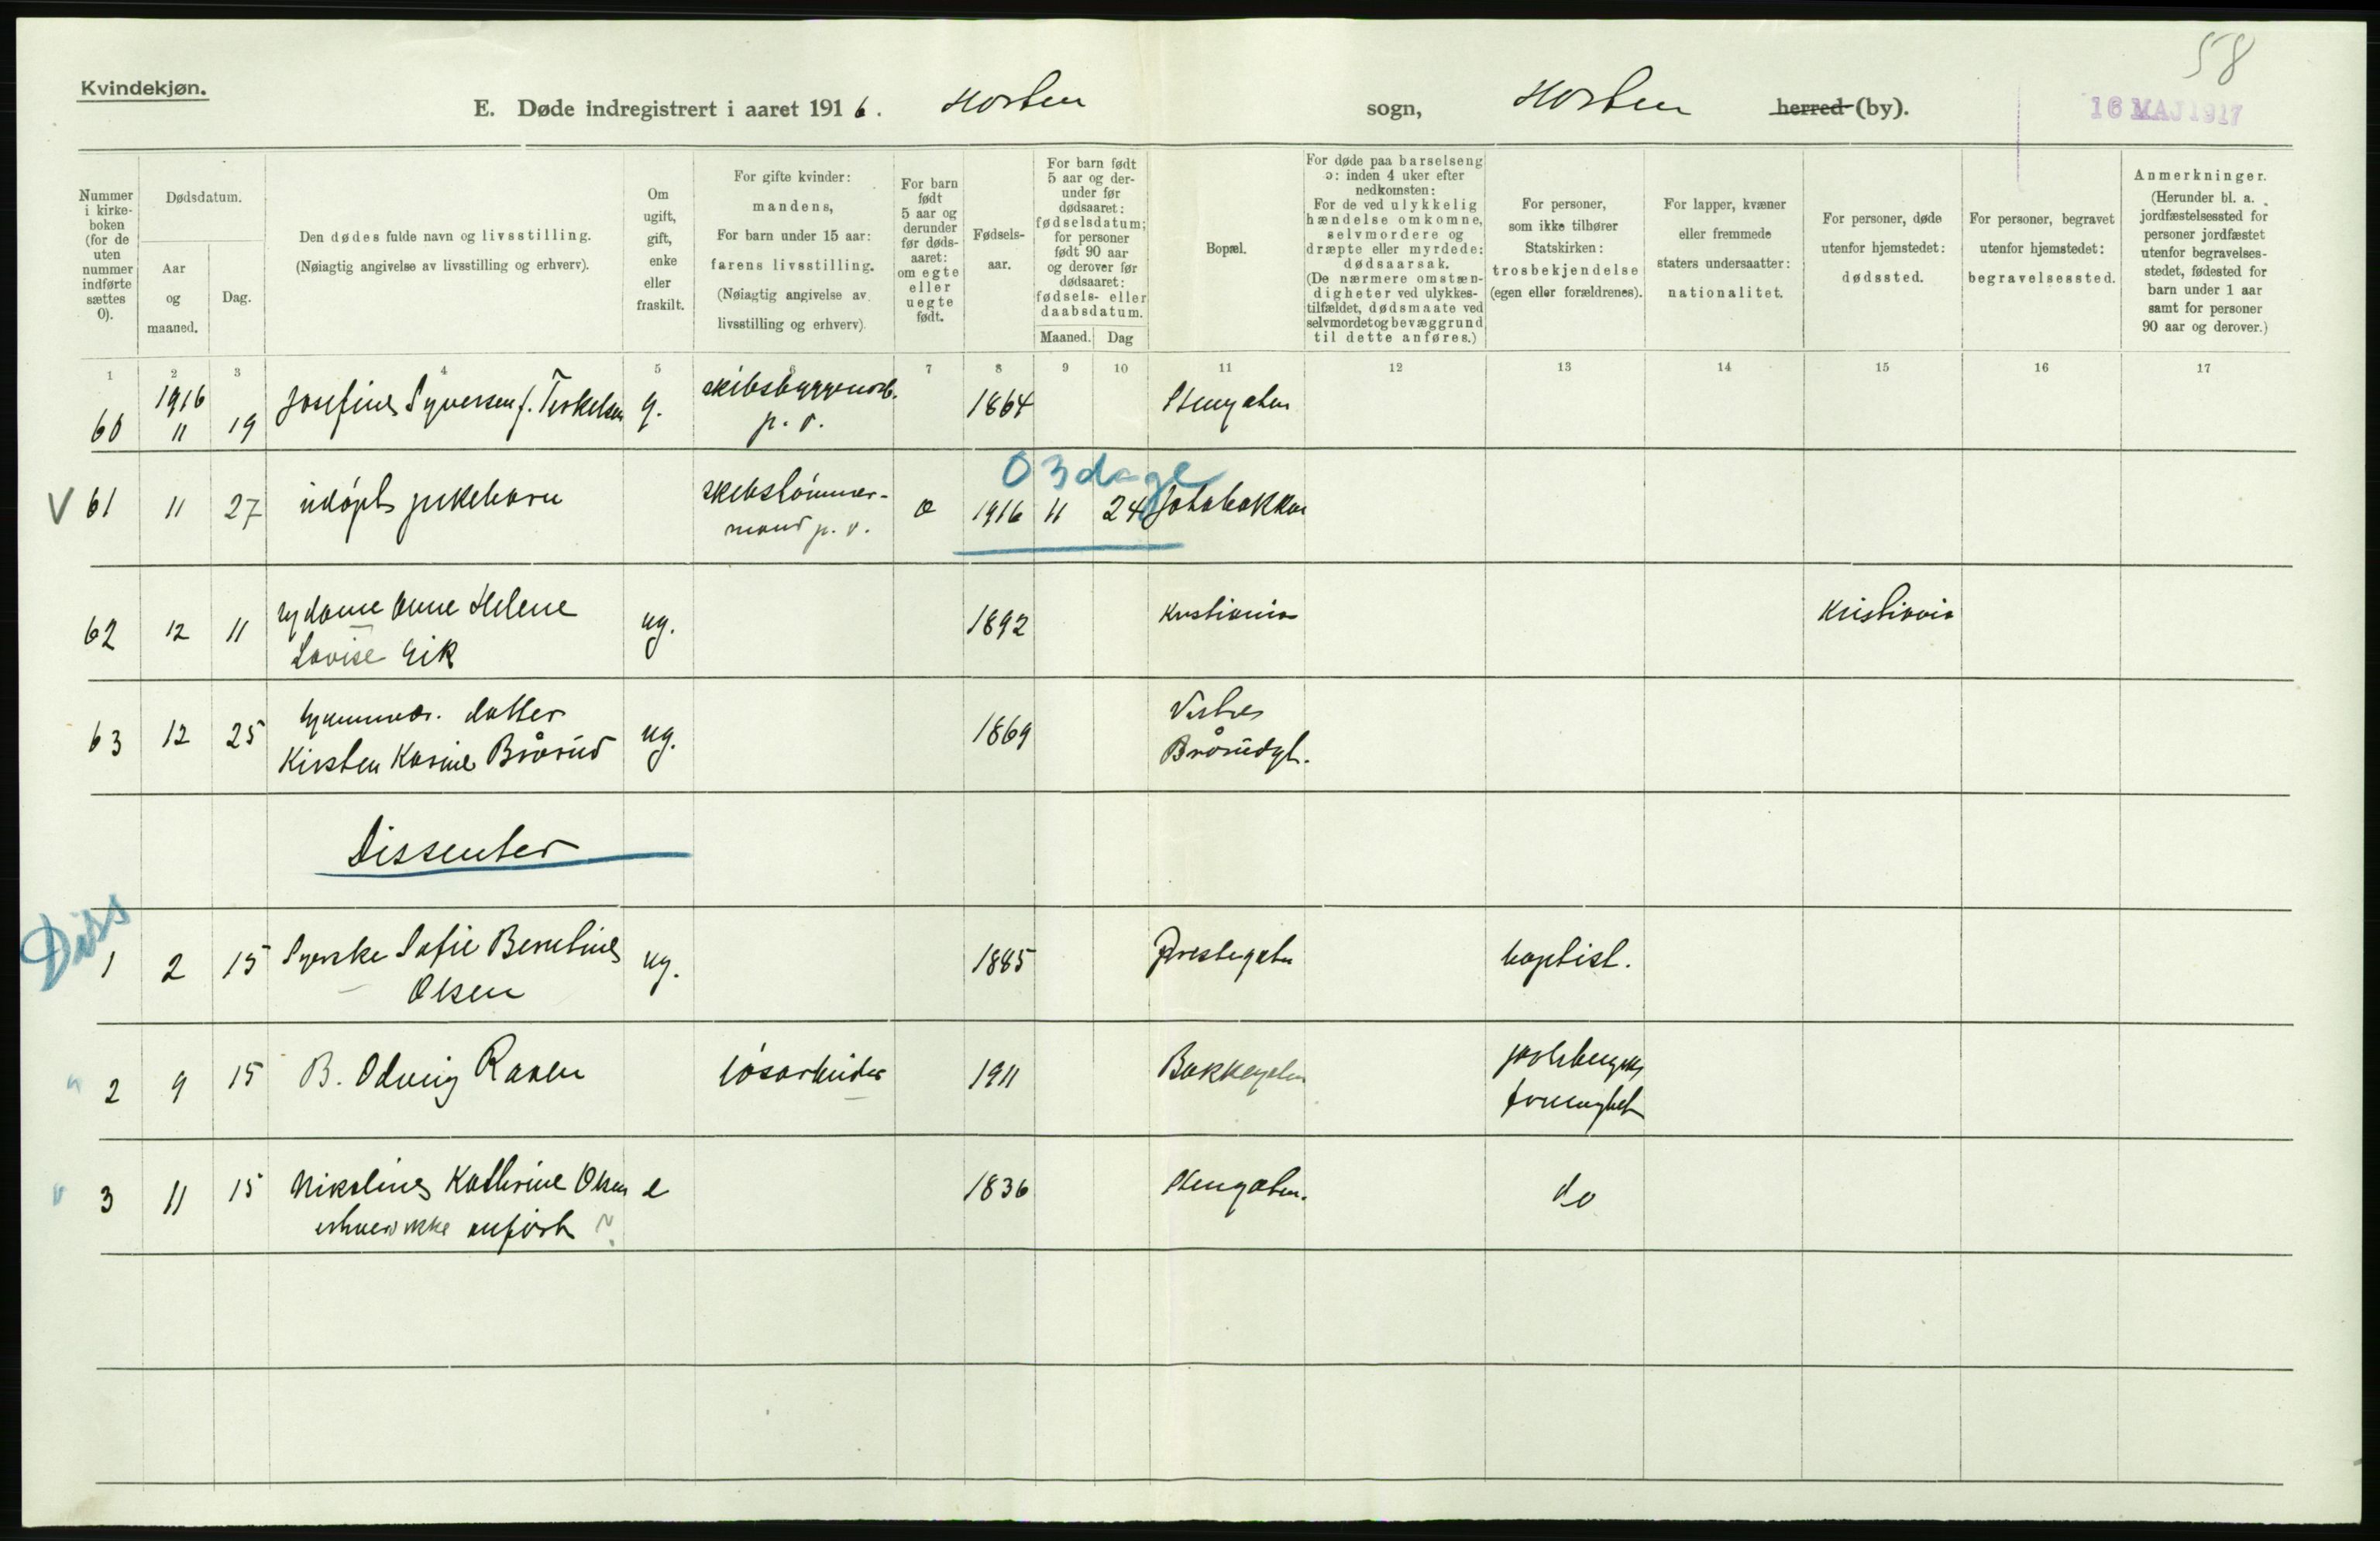 58
Kvindekjøn.
E. Døde indregistrert i aaret 1916. Horten sogn, Horten herred (by).
16 MAJ 1917
Nummer i kirke-boken (for de uten nummer indførte sættes 0).
Dødsdatum.
Aar og maaned.
Dag.
Den dødes fulde navn og livsstilling.
(Nøiagtig angivelse av livsstilling og erhverv).
Om ugift, gift, enke eller fraskilt.
For gifte kvinder: mandens,
For barn under 15 aar: farens livsstilling.
(Nøiagtig angivelse av livsstilling og erhverv).
For barn født 5 aar og derunder før døds-aaret: om egte eller uegte født.
Fødsels-aar.
For barn født 5 aar og der-under før dødsaaret: fødselsdatum; for personer født 90 aar og derover før dødsaaret: fødsels- eller daabsdatum.
Maaned. Dag
Bopæl.
For døde paa barselseng ɔ: inden 4 uker efter nedkomsten:
For de ved ulykkelig hændelse omkomne, selvmordere og dræpte eller myrdede: dødsaarsak.
(De nærmere omstæn-digheter ved ulykkes-tilfældet, dødsmaate ved selvmordet og bevæggrund til dette anføres.)
For personer, som ikke tilhører Statskirken: trosbekjendelse (egen eller forældrenes).
For lapper, kvæner eller fremmede staters undersaatter: nationalitet.
For personer, døde utenfor hjemstedet: dødssted.
For personer, begravet utenfor hjemstedet: begravelsessted.
Anmerkninger.
(Herunder bl. a. jordfæstelsessted for personer jordfæstet utenfor begravelses-stedet, fødested for barn under 1 aar samt for personer 90 aar og derover.)
1 2 3 4 5 6 7 8 9 10 11 12 13 14 15 16 17
1916
60 11 19 Josefine Syversen f. Terkelsen g. skibsbyggerarb. p. v. 1864 Stengaten
03 dage
V 61 11 27 udøpt pikebarn skibstømmer-
mand p. v. æ 1916 11 24
62 12 11 sydame Anne Helene ug. 1892 Kristiania Kristiania
Lovise Eik
63 12 25 datter ug. 1869 Vestre
Kirsten Karine Bråvud Bråvudgt.
Dissenter
Diss
1 2 15 Syerske Sofie Berntine ug. 1885 Prestegaten baptist.
Olsen
" 2 9 15 B. Odveig Raaen løsarbeider 1911 Bakkegaten
" 3 11 15 Nikoline Kathrine Olsen e 1836 Stengaten. do
erhverv ikke anført ?